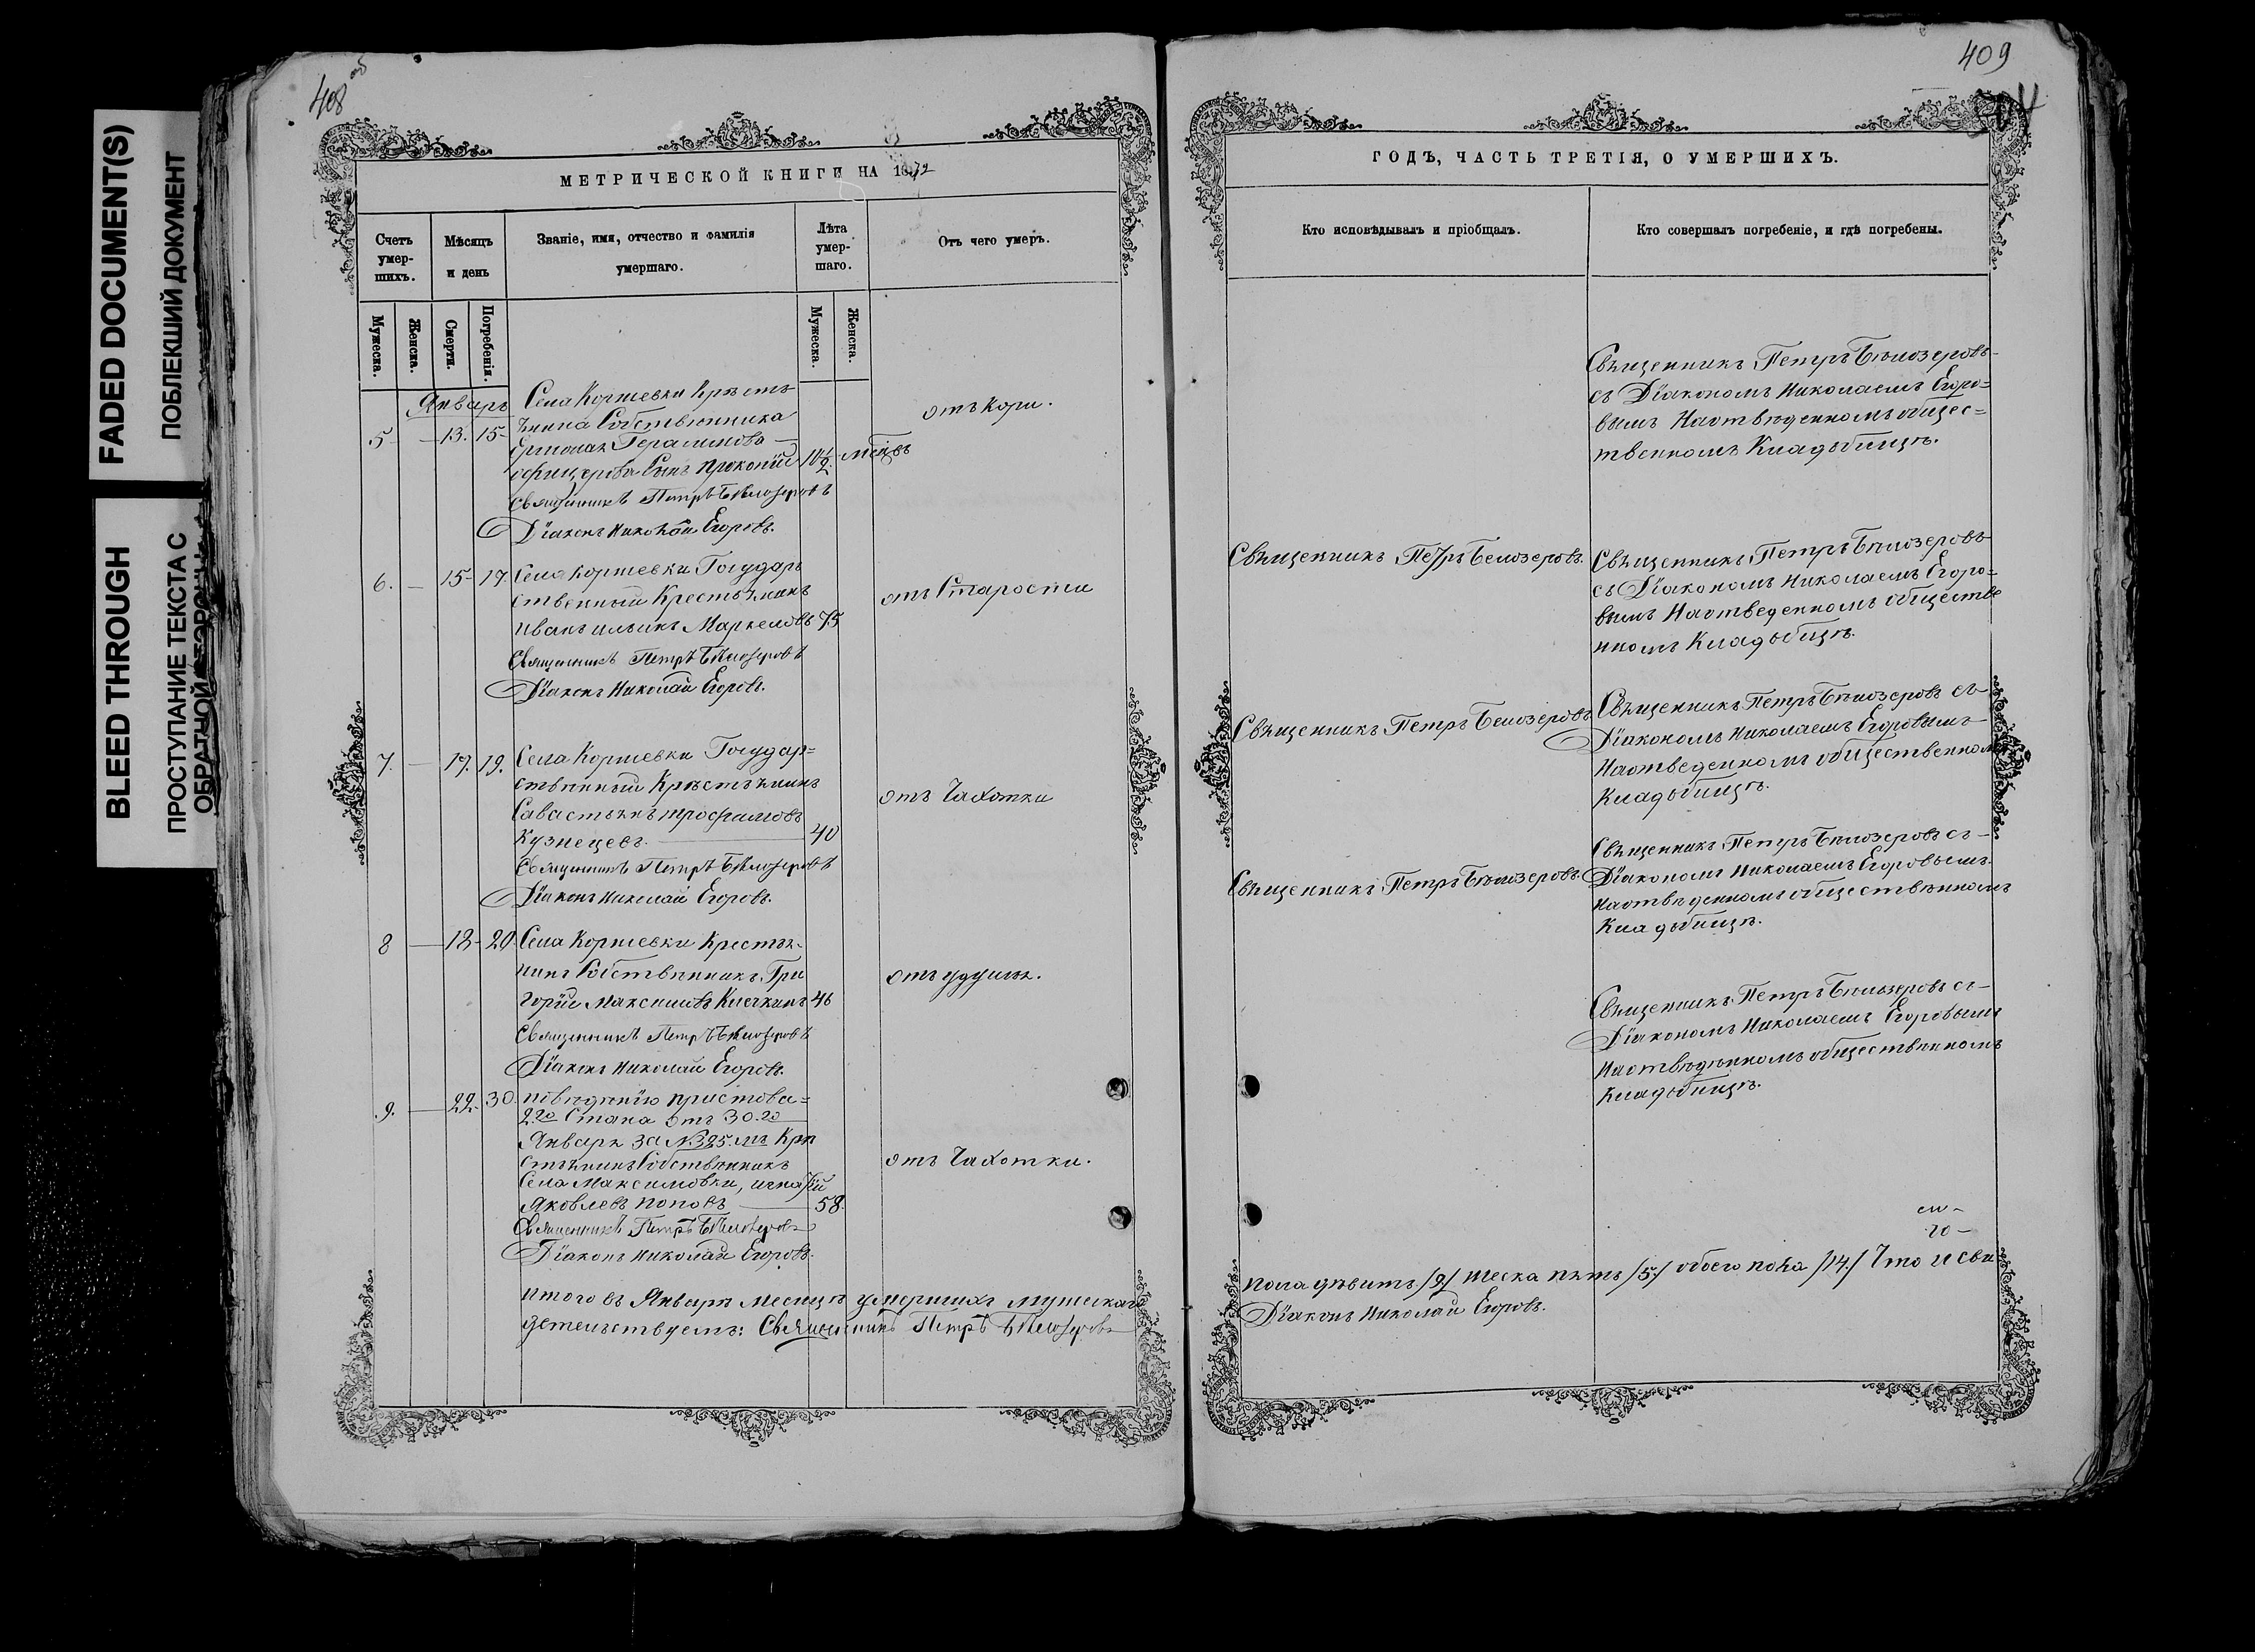 408 об
409
FADED DOCUMENT(S)
ПОБЛЕКШИЙ ДОКУМЕНТ
BLEED THROUGH
ПРОСТУПАНИЕ ТЕКСТА С
ОБРАТНОЙ СТОРОНЫ
МЕТРИЧЕСКОЙ КНИГИ НА 1872
Счетъ умер- шихъ.
Мѣсяцъ и день
Званіе, имя, отчество и фамилія
умершаго.
Лѣта умер- шаго.
Отъ чего умеръ.
Мужеска.
Женска.
Смерти.
Погребенія.
Мужеска.
Женска.
Январь
5 — 13. 15
Села Коржевки Крѣсть
ѣнина Собствѣнника
Ермолая Герасимова
офицерова Сынъ Прокопій 10½ мѣсяцъ
отъ Кори.
Священникъ Петръ Бѣлозеровъ
Діаконъ Николай Егоровъ.
6. — 15 17.
Села Коржевки Государ
ственный Крестьянинъ
Иванъ Ильинъ Маркеловъ 75
отъ Старости
Священникъ Петръ Бѣлозеровъ
Діаконъ Николай Егоровъ.
7. — 17. 19.
Села Коржевки Государ=
ственный Крѣстьянинъ
Савастьянъ трофимовъ
Кузнецевъ. 40
отъ Чахотки
Священникъ Петръ Бѣлозеровъ
Діаконъ Николай Егоровъ.
8 — 18 20
Села Коржевки Крестья-
нинъ Собственникъ Гри
горій Максимовъ Клечкинъ 46
отъ удушья.
Священникъ Петръ Бѣлозеровъ
Діаконъ Николай Егоровъ.
9. — 22. 30.
повѣденію пристова=
2го Стана отъ 30.го
Января за №325.мъ Крѣ
стьянинъ Собственникъ
Села Максимовки, игнатій
Яковлевъ Поповъ 58.
отъ Чахотки.
Священникъ Петръ Бѣлозеровъ
Діаконъ Николай Егоровъ.
итого въ Январѣ Месяцѣ умершихъ мужескаго
детельствуемъ: Священникъ Петръ Бѣлозеровъ
ГОДЪ, ЧАСТЬ ТРЕТІЯ, О УМЕРШИХЪ.
Кто исповѣдывалъ и пріобщалъ.
Кто совершалъ погребеніе, и гдѣ погребены.
Свѣщенникъ Петръ Бѣлозеровъ
съ Діакономъ Николаемъ Егоро=
вымъ Наотвѣденномъ общес=
твенномъ Кладбищѣ.
Свѣщенникъ Петръ Белозеровъ.
Свѣщенникъ Петръ Бѣлозеровъ
съ Діакономъ Николаемъ Егоро=
вымъ Наотведенномъ обществе
нномъ Кладбищѣ.
Свѣщенникъ Петръ Белозеровъ
Свѣщенникъ Петръ Бѣлозеровъ съ
Діакономъ Николаемъ Егоровымъ
Наотведенномъ общественномъ
Кладбищѣ.
Свѣщенникъ Петръ Бѣлозеровъ.
Свѣщенникъ Петръ Бѣлозеровъ съ
Діакономъ Николаемъ Егоровымъ
Наотвѣденномъ обществѣнномъ
Кладбищѣ.
Свѣщенникъ Петръ Бѣлозеровъ съ
Діакономъ Николаемъ Егоровымъ
Наотвѣденномъ общественномъ
Кладбищѣ.
пола дѣвить /9/ жеска пять /5/ обоего пола /14/ Что и сви
Діаконъ Николай Егоровъ.